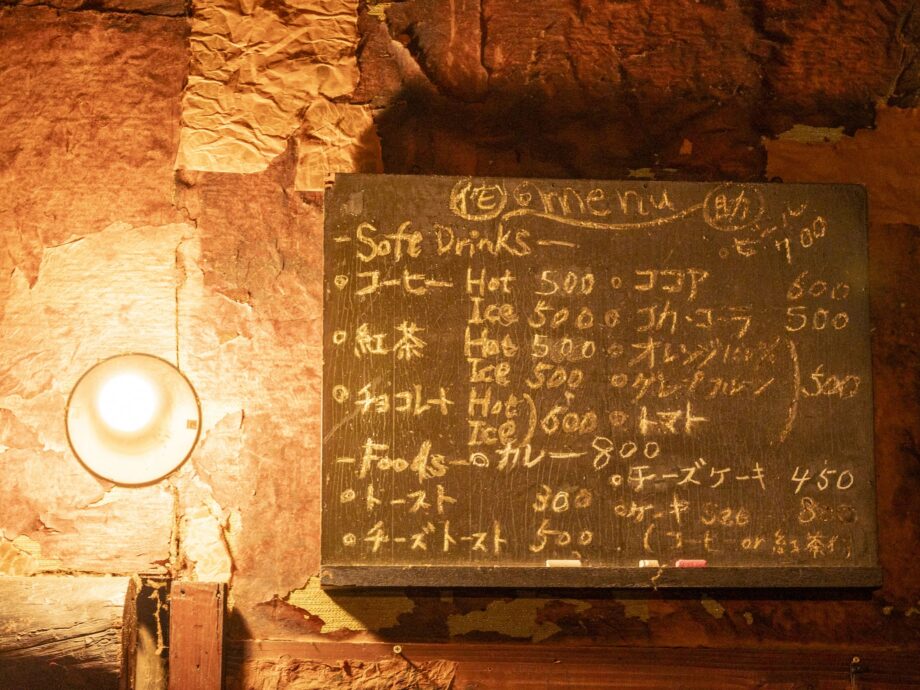 menu 助
ビール 700
- Sofe Drinks -
○ コーヒー Hot 500 ○ ココア 600
Ice 500 ○ コカ・コーラ 500
○ 紅茶 Hot 500 ○ オレンジ
Ice 500 ○ グレープフルーツ 500
○ チョコレート Hot 600 ○ トマト
Ice
- Foods - ○ カレー 800
○ チーズケーキ 450
○ トースト 300 ○ ケーキ Set 800
○ チーズトースト 500 (コーヒー or 紅茶付)